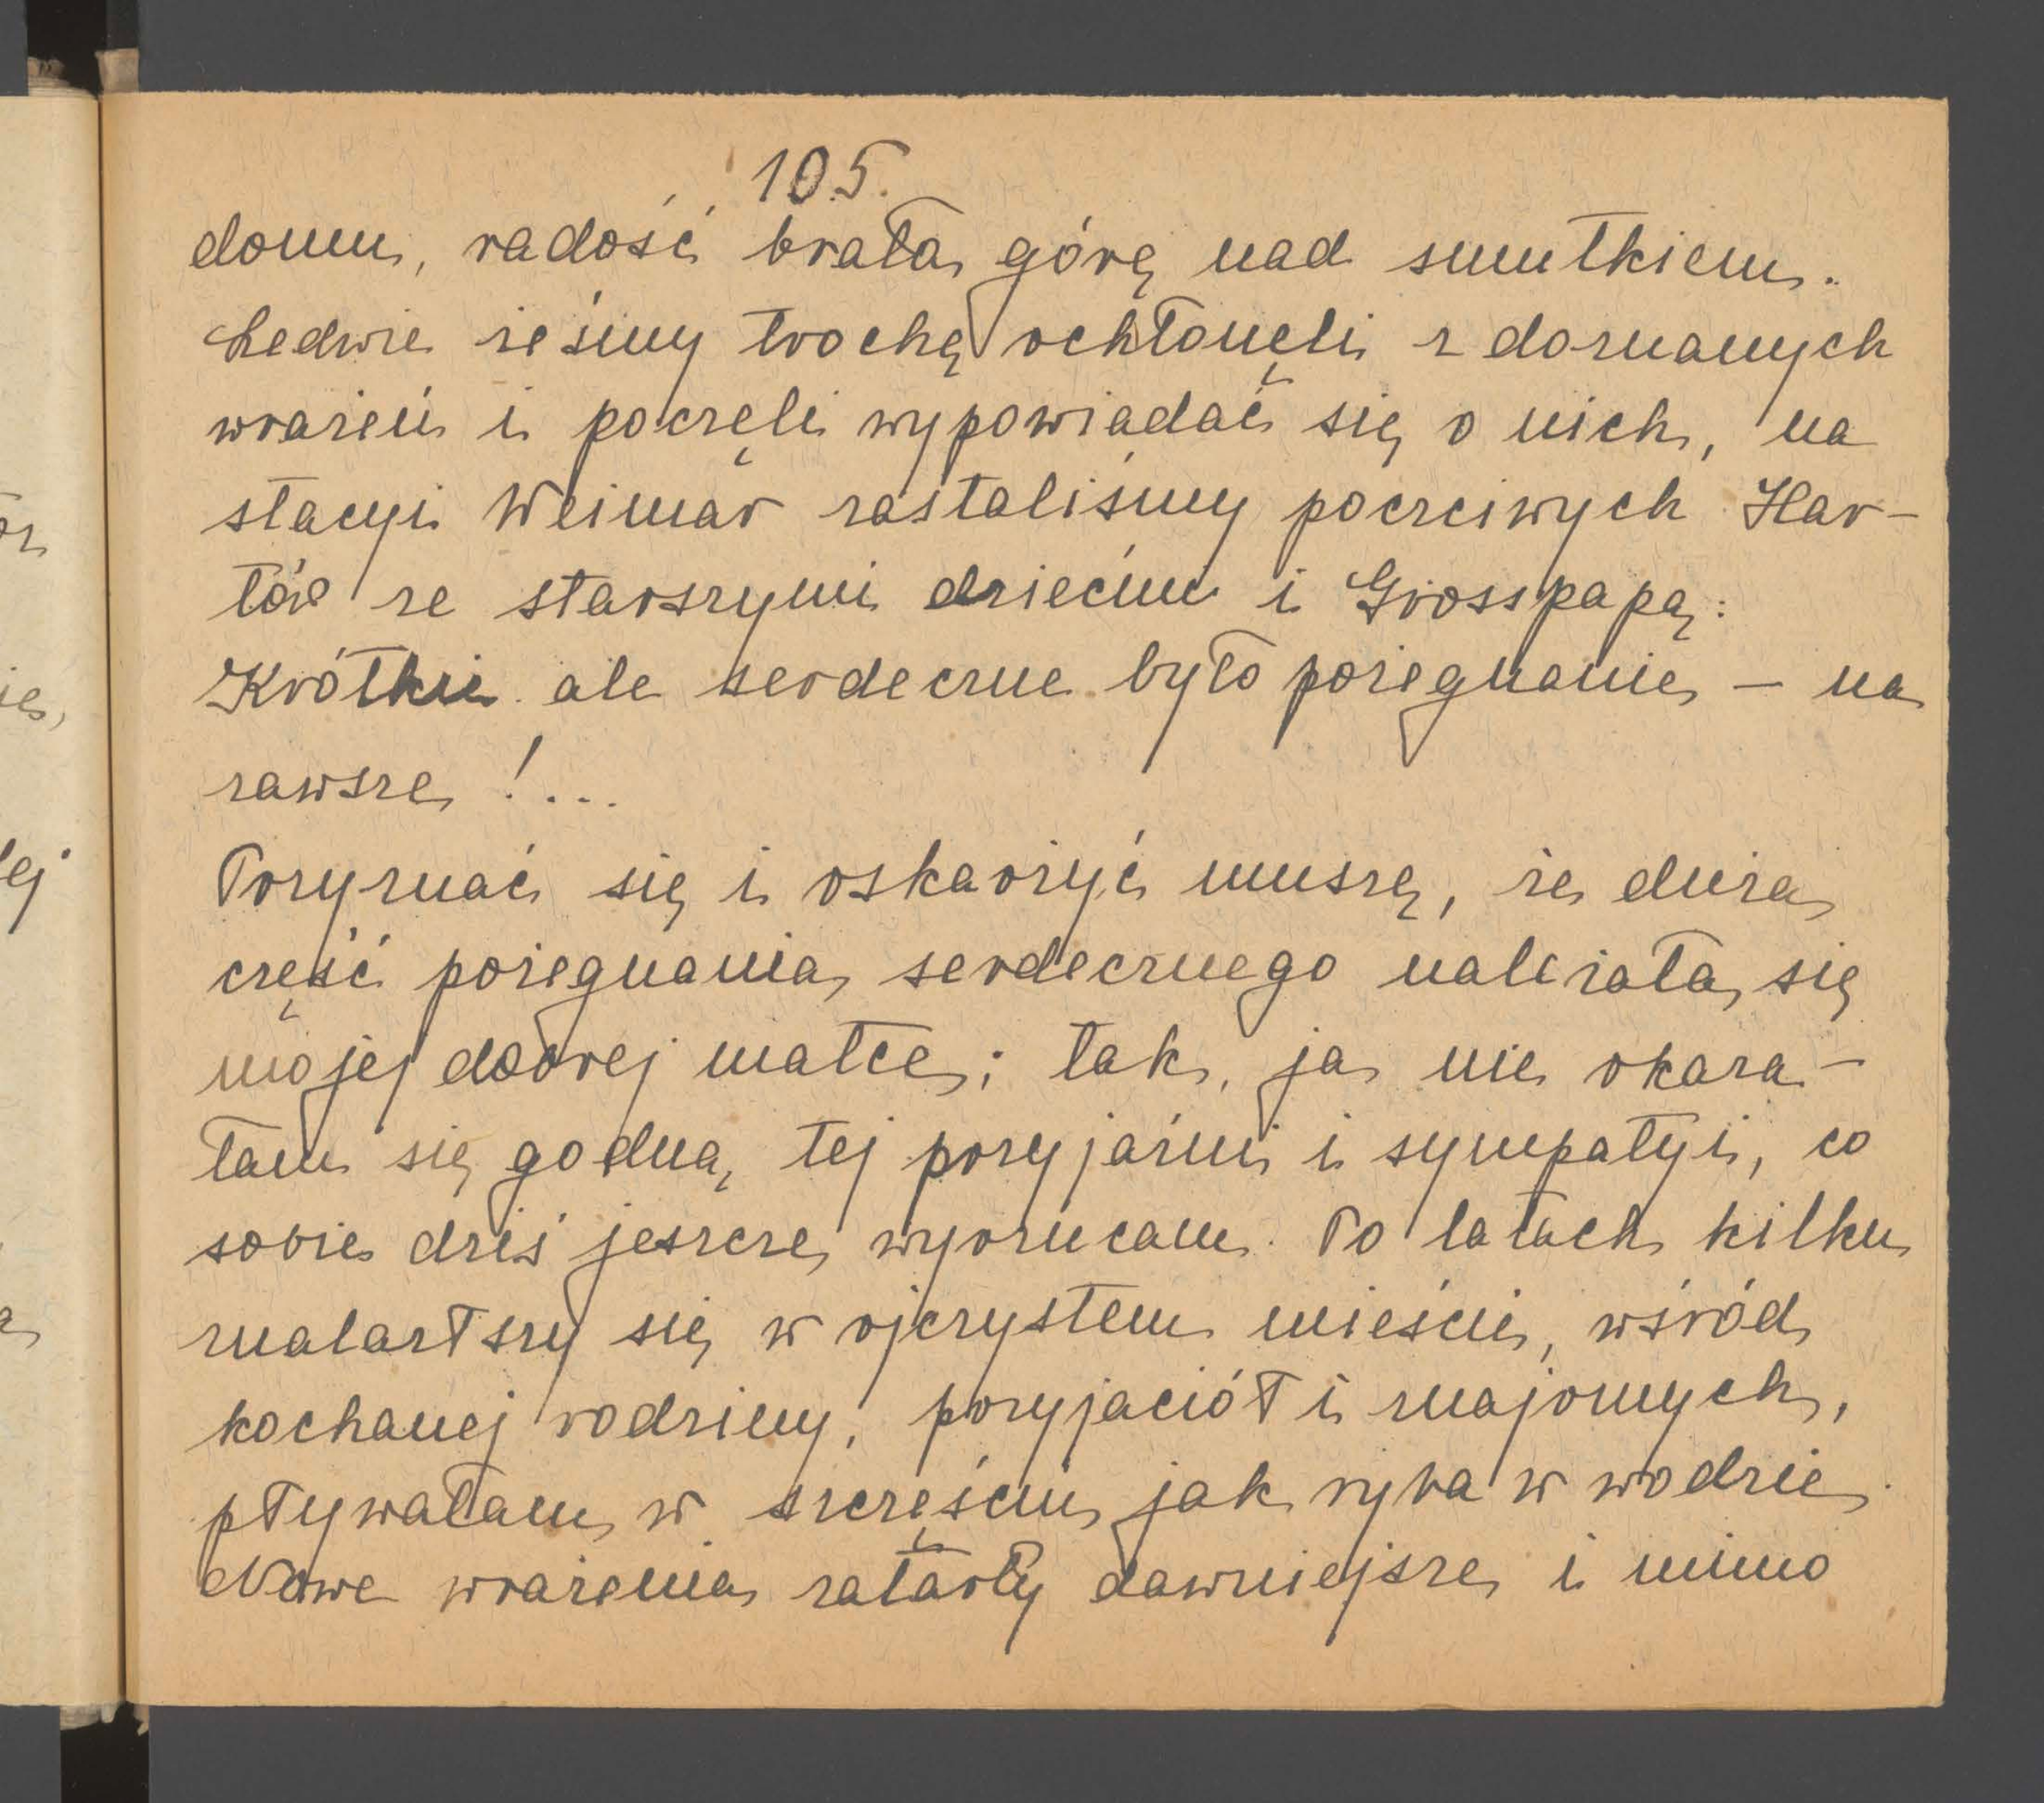 105.
domu, radość brała górę nad smutkiem.
Ledwie żeśmy trochę ochłonęli z doznanych
wrażeń i poczęli wypowiadać się o nich, na
stacyi Weimar zastaliśmy poczciwych Har-
tów ze starszymi dziećmi i Grosspapą.
Krótkie ale serdeczne było pożegnanie – na
zawsze!...
Przyznać się i oskarżyć muszę, że duża
część pożegnania serdecznego należała się
mojej dobrej matce; tak, ja nie okaza-
łam się godną tej przyjaźni i sympatyi, co
sobie dziś jeszcze wyrzucam. Po latach kilku
znalazłszy się w ojczystem mieście, wśród
kochanej rodziny, przyjaciół i znajomych,
pływałam w szczęściu jak ryba w wodzie.
Nowe wrażenia zatarły dawniejsze i mimo